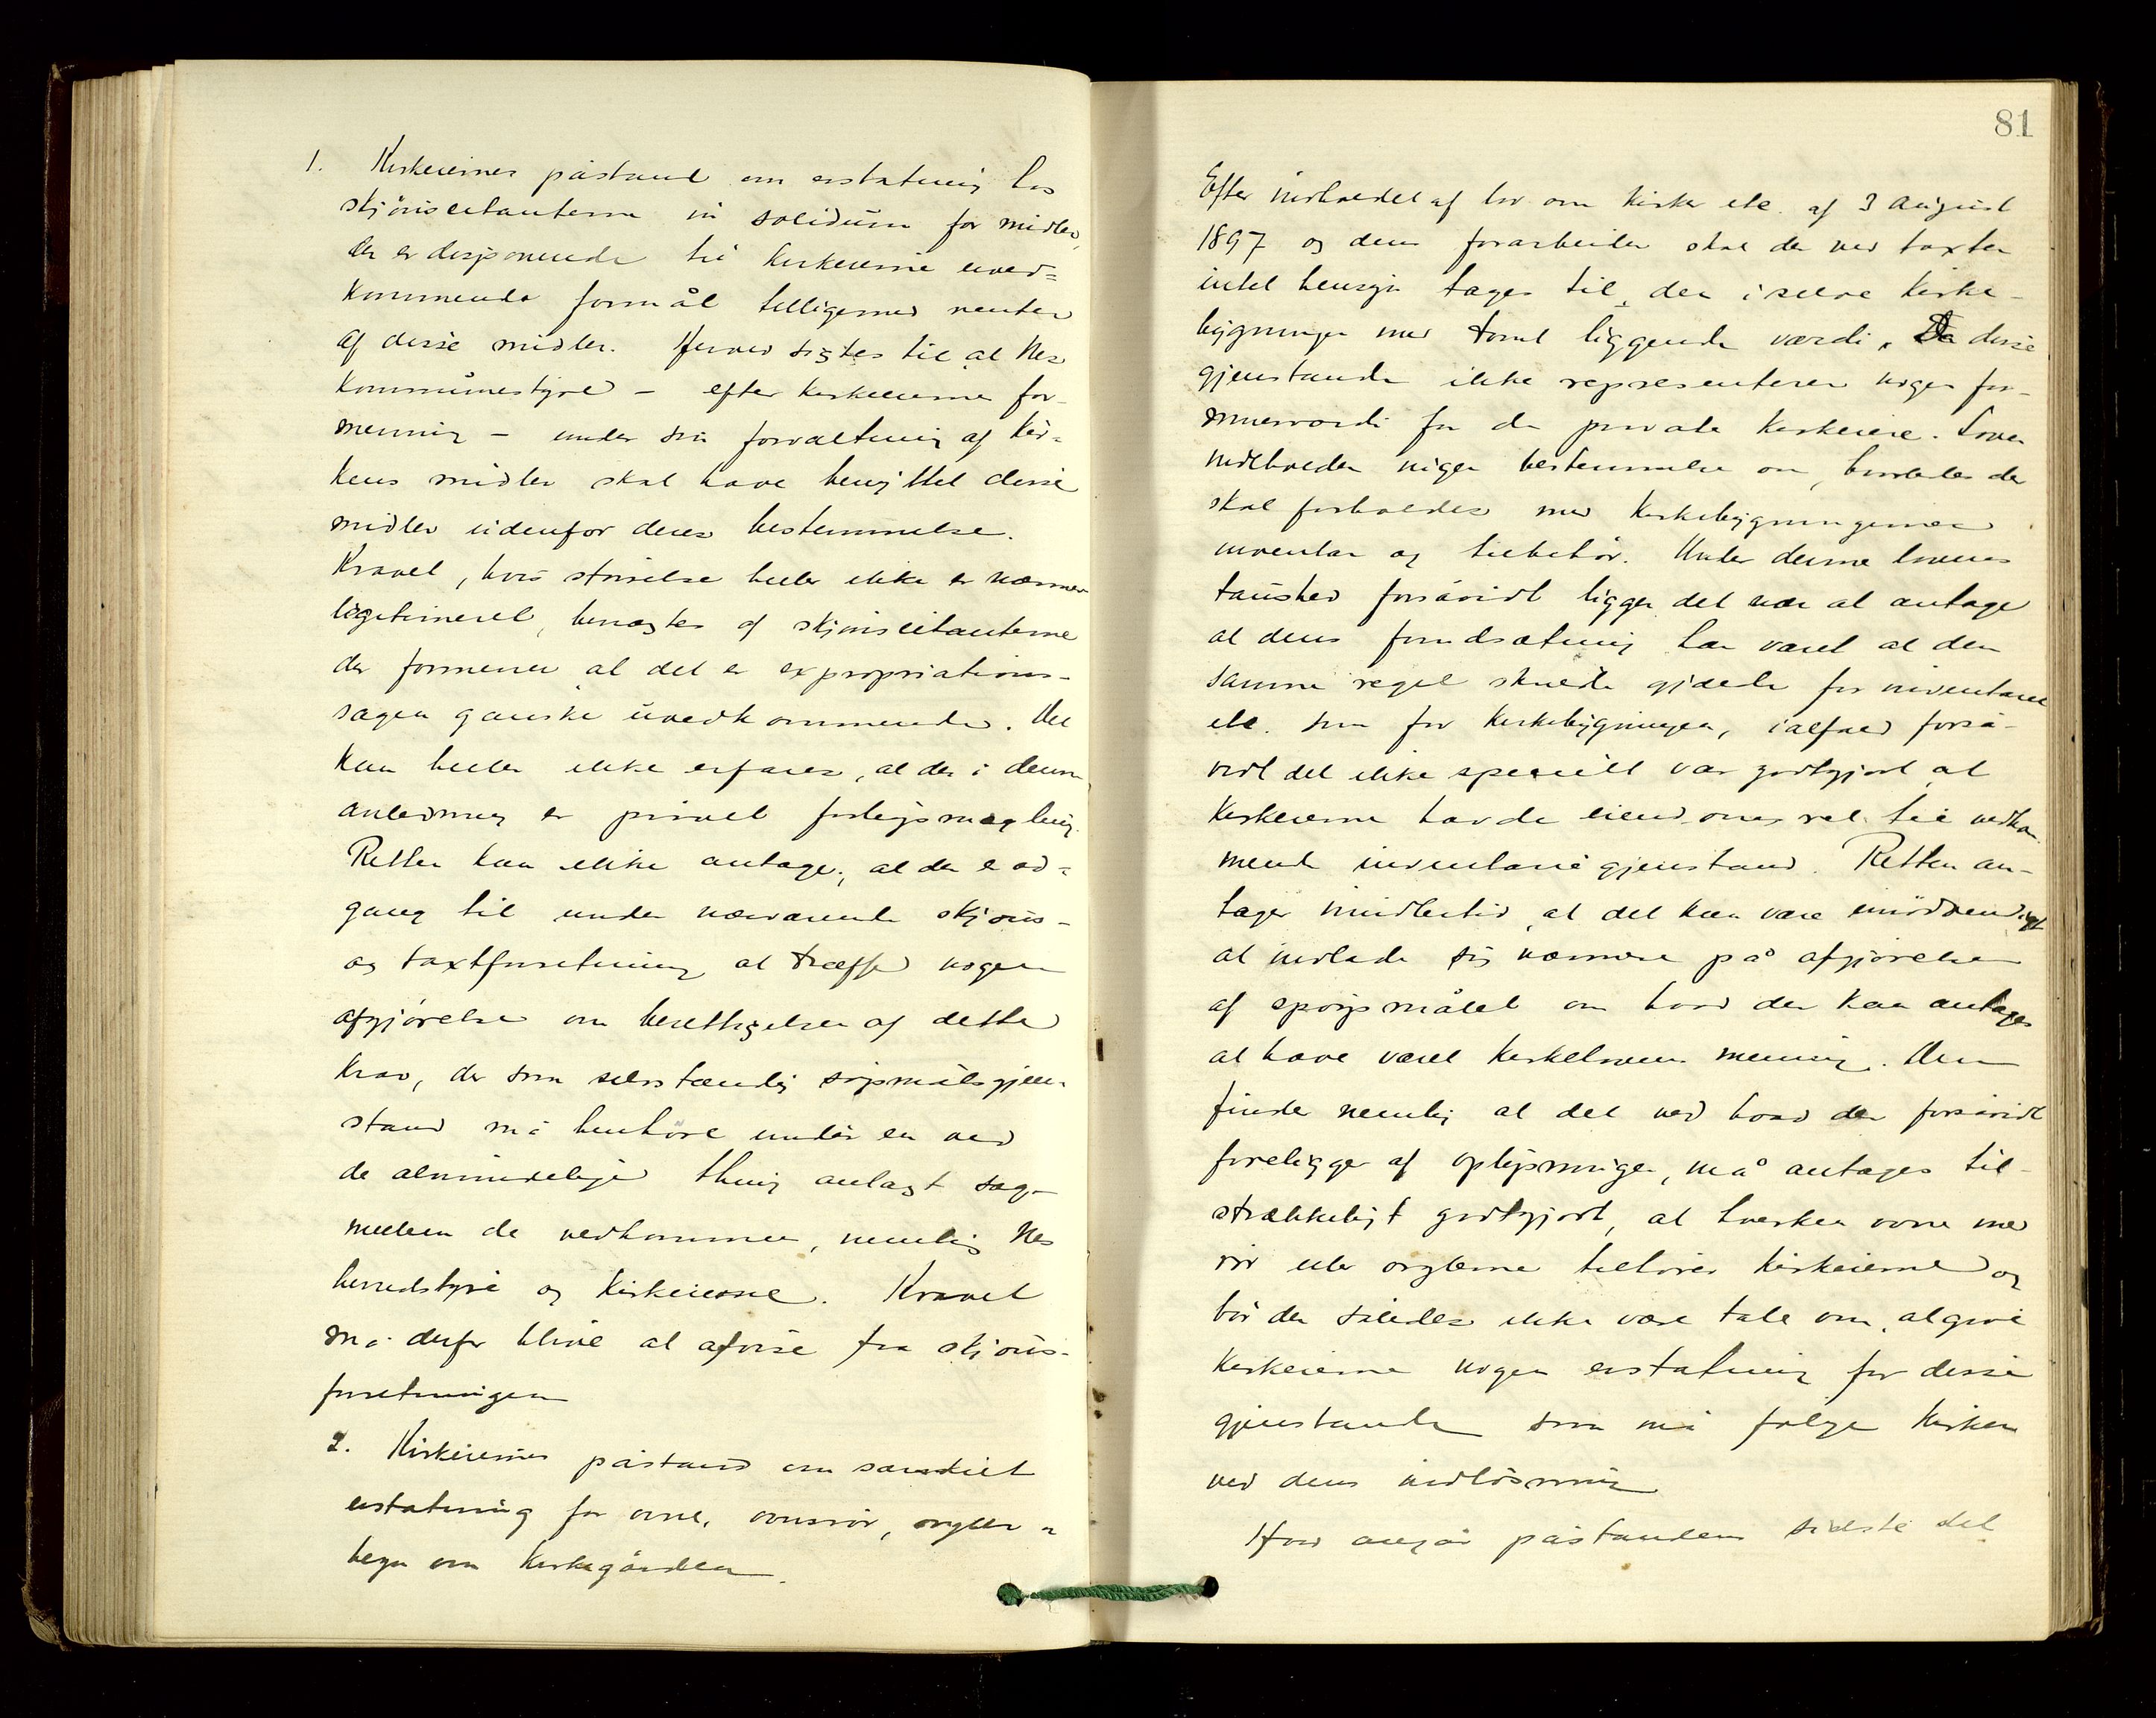 1. Kirkeiernes påstand om erstatning hos
skjönscitanterne in solidum for midler,
der er disponerede til kirkeierne uved=
kommende formål tilligemed renter
af disse midler. Herved sigtes til at Nes
kommunestyre – efter kirkeierne for-
mening – under sin forvaltning af kir-
kens midler skal have benyttet disse
midler udenfor deres bestemmelse.
Kravet, hvis störrelse heller ikke er nærmere
legitimeret, benægtes af skjönscitanterne
der formener at det er expropriations-
sagen ganske uvedkommende. Det
kan heller ikke erfares, at der i denne
anledning er prøvet forligsmægling.
Retten kan ikke antage, at der er ad-
gang til under nærværende skjöns-
og taxtforretning at træffe nogen
afgjörelse om berettigelsen af dette
krav, der som selvstændig sögsmålsgjen-
stand må henhöre under en ved
de almindelige thing anlagt sag
mellem de vedkommende, nemlig Nes
herredstyre og kirkeierne. Kravet
må derfor blive at afvise fra skjöns-
forretningen
2. Kirkeiernes påstand om særskilt
erstatning for ovne, ovnsrör, orgler og
hegn om kirkegården.
81
Efter indholdet af lov om kirker etc. af 3 August
1897 og dens forarbeider skal der ved taxten
intet hensyn tages til den i selve kirke-
bygningen med tomt liggende værdi, da disse
gjenstande ikke representerer nogen for-
muesværdi for de private kirkeiere. Loven
indeholder ingen bestemmelse om, hvorledes der
skal forholdes med kirkebygningernes
inventar og tilbehör. Under denne lovens
taushed forsåvidt ligger det nær at antage
at dens forudsætning har været at den
samme regel skulde gjælde for inventaret
etc. som for kirkebygningen, ialfald forså-
vidt det ikke specielt var godtgjort at
kirkeierne havde eiendomsret til vedkom-
mende inventariegjenstand. Retten an-
tager imidlertid at det kan være unödvendigt
at indlade sig nærmere på afgjörelsen
af spörgsmålet om hvad der kan antages
at have været kirkelovens mening. Den
finder nemlig at det ved hvad der forsåvidt
foreligger af oplysninger, må antages til-
strækkeligt godtgjort, at hverken ovne med
rör eller orglerne tilhörer kirkeierne og
bör der således ikke være tale om at give
kirkeierne nogen erstatning for disse
gjenstande som må fölge kirken
ved dens indlösning
Hvad angår påstandens sidste del